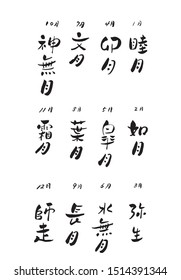 1月
睦月
2月
如月
3月
弥生
4月
卯月
5月
皐月
6月
水無月
7月
文月
8月
葉月
9月
長月
10月
神無月
11月
霜月
12月
師走
www.shutterstock.com · 1514391344